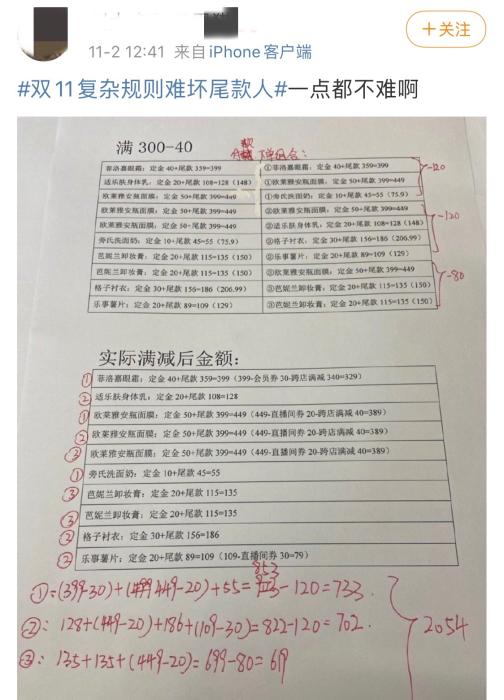 +关注
11-2 12:41 来自iPhone客户端
#双11复杂规则难坏尾款人#一点都不难啊
满 300-40
分款下单组合：
菲洛嘉眼霜：定金 40+尾款 359=399
①菲洛嘉眼霜：定金 40+尾款 359=399
适乐肤身体乳：定金 20+尾款 108=128（148）
①欧莱雅安瓶面膜：定金 50+尾款 399=449
欧莱雅安瓶面膜：定金 50+尾款 399=449
①旁氏洗面奶：定金 10+尾款 45=55（75.9）
-120
欧莱雅安瓶面膜：定金 50+尾款 399=449
②欧莱雅安瓶面膜：定金 50+尾款 399=449
欧莱雅安瓶面膜：定金 50+尾款 399=449
②适乐肤身体乳：定金 20+尾款 108=128（148）
旁氏洗面奶：定金 10+尾款 45=55（75.9）
②格子衬衣：定金 30+尾款 156=186（206.99）
芭妮兰卸妆膏：定金 20+尾款 115=135（150）
②乐事薯片：定金 20+尾款 89=109（129）
-120
芭妮兰卸妆膏：定金 20+尾款 115=135（150）
③欧莱雅安瓶面膜：定金 50+尾款 399=449
格子衬衣：定金 30+尾款 156=186（206.99）
③芭妮兰卸妆膏：定金 20+尾款 115=135（150）
乐事薯片：定金 20+尾款 89=109（129）
③芭妮兰卸妆膏：定金 20+尾款 115=135（150）
-80
实际满减后金额：
① 菲洛嘉眼霜：定金 40+尾款 359=399（399-会员券 30-跨店满减 340=329）
② 适乐肤身体乳：定金 20+尾款 108=128
① 欧莱雅安瓶面膜：定金 50+尾款 399=449（449-直播间券 20-跨店满减 40=389）
② 欧莱雅安瓶面膜：定金 50+尾款 399=449（449-直播间券 20-跨店满减 40=389）
③ 欧莱雅安瓶面膜：定金 50+尾款 399=449（449-直播间券 20-跨店满减 40=389）
① 旁氏洗面奶：定金 10+尾款 45=55
③ 芭妮兰卸妆膏：定金 20+尾款 115=135
③ 芭妮兰卸妆膏：定金 20+尾款 115=135
② 格子衬衣：定金 30+尾款 156=186
② 乐事薯片：定金 20+尾款 89=109（109-直播间券 30=79）
①=(399-30)+(449-20)+55=853-120=733.
②：128+(449-20)+186+(109-30)=822-120=702.
③：135+135+(449-20)=699-80=619
2054